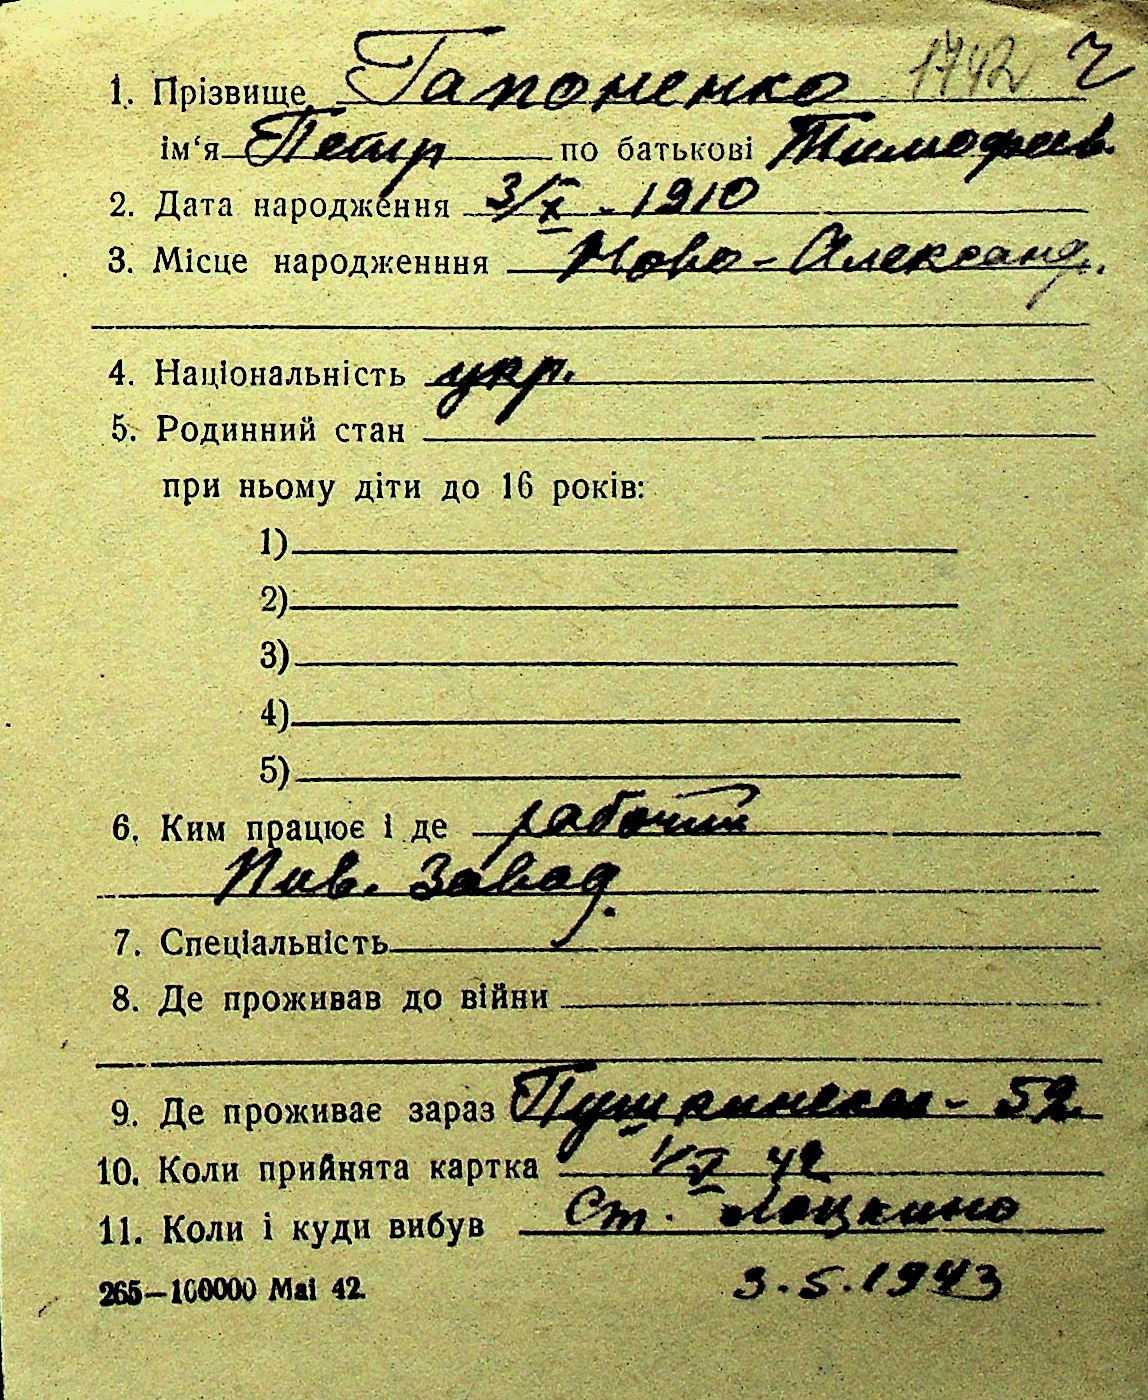 1742 г
1. Прізвище Гапоненко
ім‘я Петр по батькові Тимофеев.
2. Дата народження 3/X - 1910
3. Місце народженння Ново-Александ.
4. Національність укр.
5. Родинний стан
при ньому діти до 16 років:
1)
2)
3)
4)
5)
6. Ким працює і де рабочий
Пив. Завод.
7. Спеціальність
8. Де проживав до війни
9. Де проживає зараз Пушкинская - 52
10. Коли прийнята картка 42
11. Коли і куди вибув Ст. Лоцкино
265—100000 Mai 42.
3.5.1943